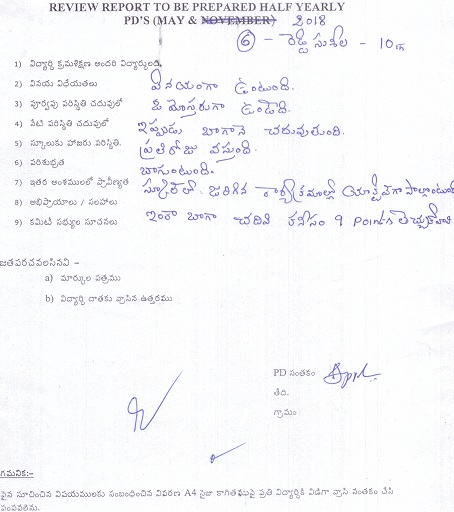 REVIEW REPORT TO BE PREPARED HALF YEARLY
PD'S (MAY & NOVEMBER) 2018
6 - రెడ్డి సుశీల - 10th
1) విద్యార్థి క్రమశిక్షణ అందరి విద్యార్థులతో.
2) వినయ విధేయతలు వినయంగా ఉంటుంది.
3) పూర్వపు పరిస్థితి చదువులో ఓ మోస్తరుగా ఉండేది.
4) నేటి పరిస్థితి చదువులో ఇప్పుడు బాగానే చదువుతుంది.
5) స్కూలుకు హాజరు పరిస్థితి. ప్రతిరోజు వస్తుంది.
6) పరిశుభ్రత బాగుంటుంది.
7) ఇతర అంశములలో ప్రావీణ్యత స్కూల్‌లో జరిగిన కార్యక్రమాల్లో యాక్టివ్‌గా పాల్గొంటుంది
8) అభిప్రాయాలు / సలహాలు
9) కమిటీ సభ్యుల సూచనలు ఇంకా బాగా చదివి కనీసం 9 Points తెచ్చుకోవాలి
జతపరచవలసినవి :-
a) మార్కుల పత్రము
b) విద్యార్థి దాతకు వ్రాసిన ఉత్తరము
PD సంతకం
తేది.
గ్రామం
గమనిక:-
పైన సూచించిన విషయములకు సంబంధించిన వివరణ A4 సైజు కాగితముపై ప్రతి విద్యార్థికి విడిగా వ్రాసి సంతకం చేసి
పంపవలెను.